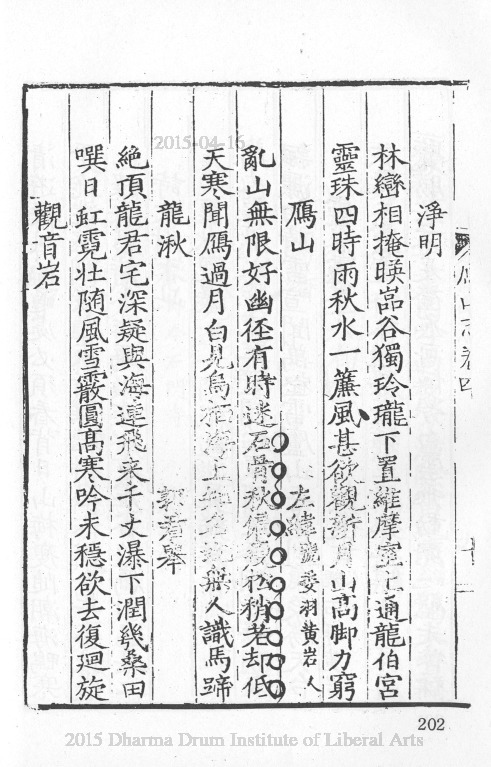 淨明
林巒相掩映嵓谷獨玲瓏下置維摩室通龍伯宮
靈珠四時雨秋水一簾風甚欲觀新月山高脚力窮
鴈山
左緯號委羽黄岩人
亂山無限好幽徑有時迷石骨秋松稍老却低
天寒聞鴈過月白見烏栖海上無人識馬蹄
龍湫
郭君舉
絶頂龍君宅深疑與海連飛来千丈瀑下潤幾桑田
噀日虹霓壮随風雪霰圓髙寒吟未穩欲去復迴旋
觀音岩
202
2015-04-16
2015 Dharma Drum Institute of Liberal Arts